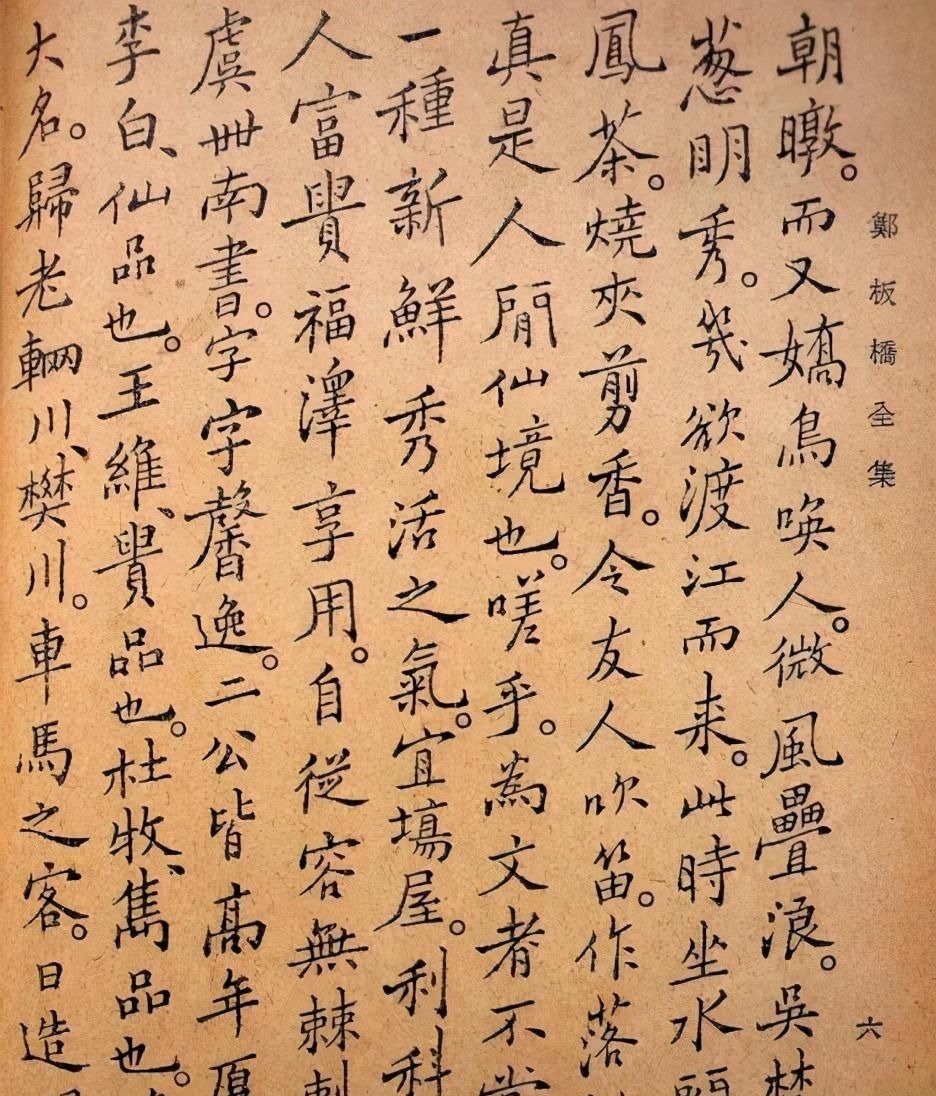 鄭板橋全集
六
朝暾。而又嬌鳥喚人。微風疊浪。吳楚
葱明秀。幾欲渡江而来。此時坐水
鳳茶。燒夾剪香。令友人吹笛。作落
真是人間仙境也。嗟乎。為文者不當
一種新鮮秀活之氣。宜塲屋。利科
人富貴福澤享用。自從容無棘刺
虞世南書。字字馨逸。二公皆高年厚
李白、仙品也。王維、貴品也。杜牧、雋品也。
大名。歸老輞川、樊川。車馬之客。日造